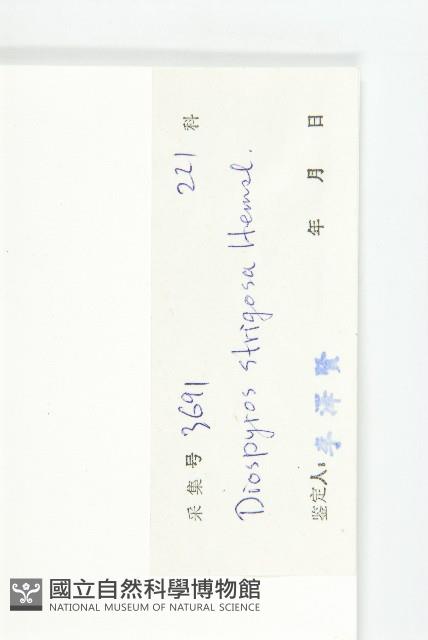 采集号 3691 221 科
Diospyros strigosa Hemsl.
鉴定人: 李泽贤 年 月 日
國立自然科學博物館
NATIONAL MUSEUM OF NATURAL SCIENCE